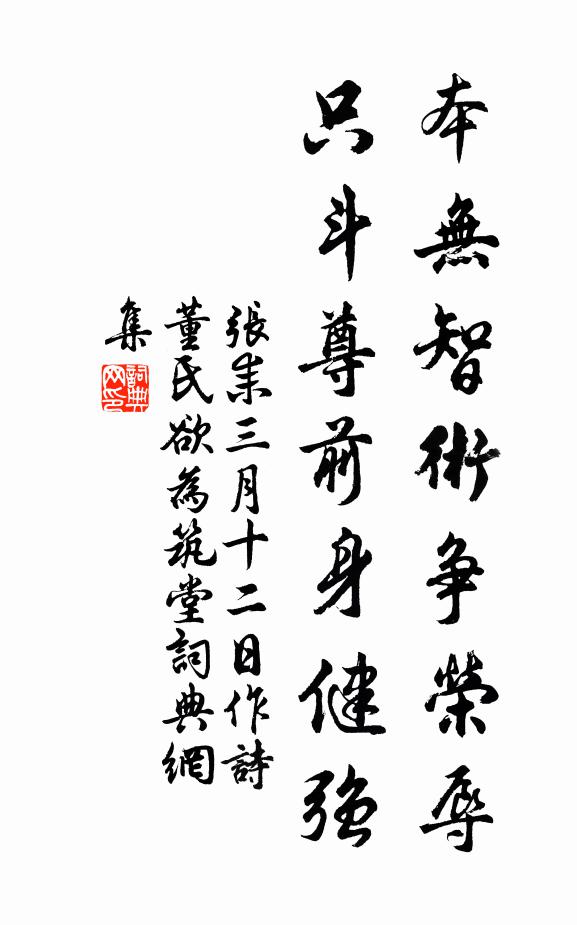 本無智術争榮辱
只斗尊前身健強
張耒三月十二日作詩
董氏欲為筑堂詞典網
集
詞典
网印